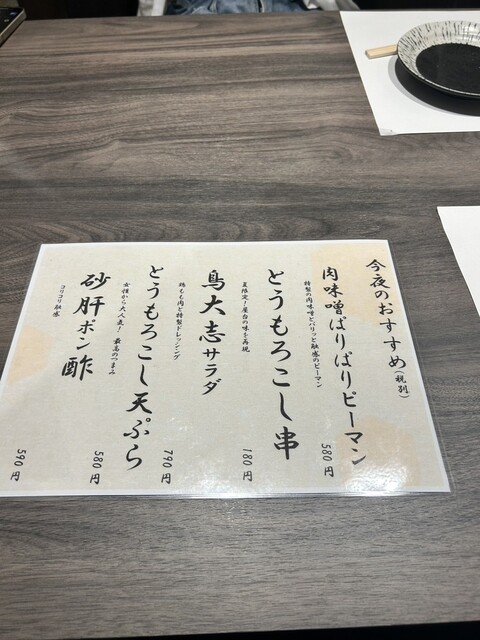 今夜のおすすめ(税別)
肉味噌ぱりぱりピーマン
特製の肉味噌とパリッと融感のピーマン
580円
とうもろこし串
夏限定!屋台の味を再現
180円
鳥大志サラダ
鶏もも肉と特製ドレッシング
790円
とうもろこし天ぷら
女性から大人気!最高のつまみ
580円
砂肝ポン酢
コリコリ融感
590円